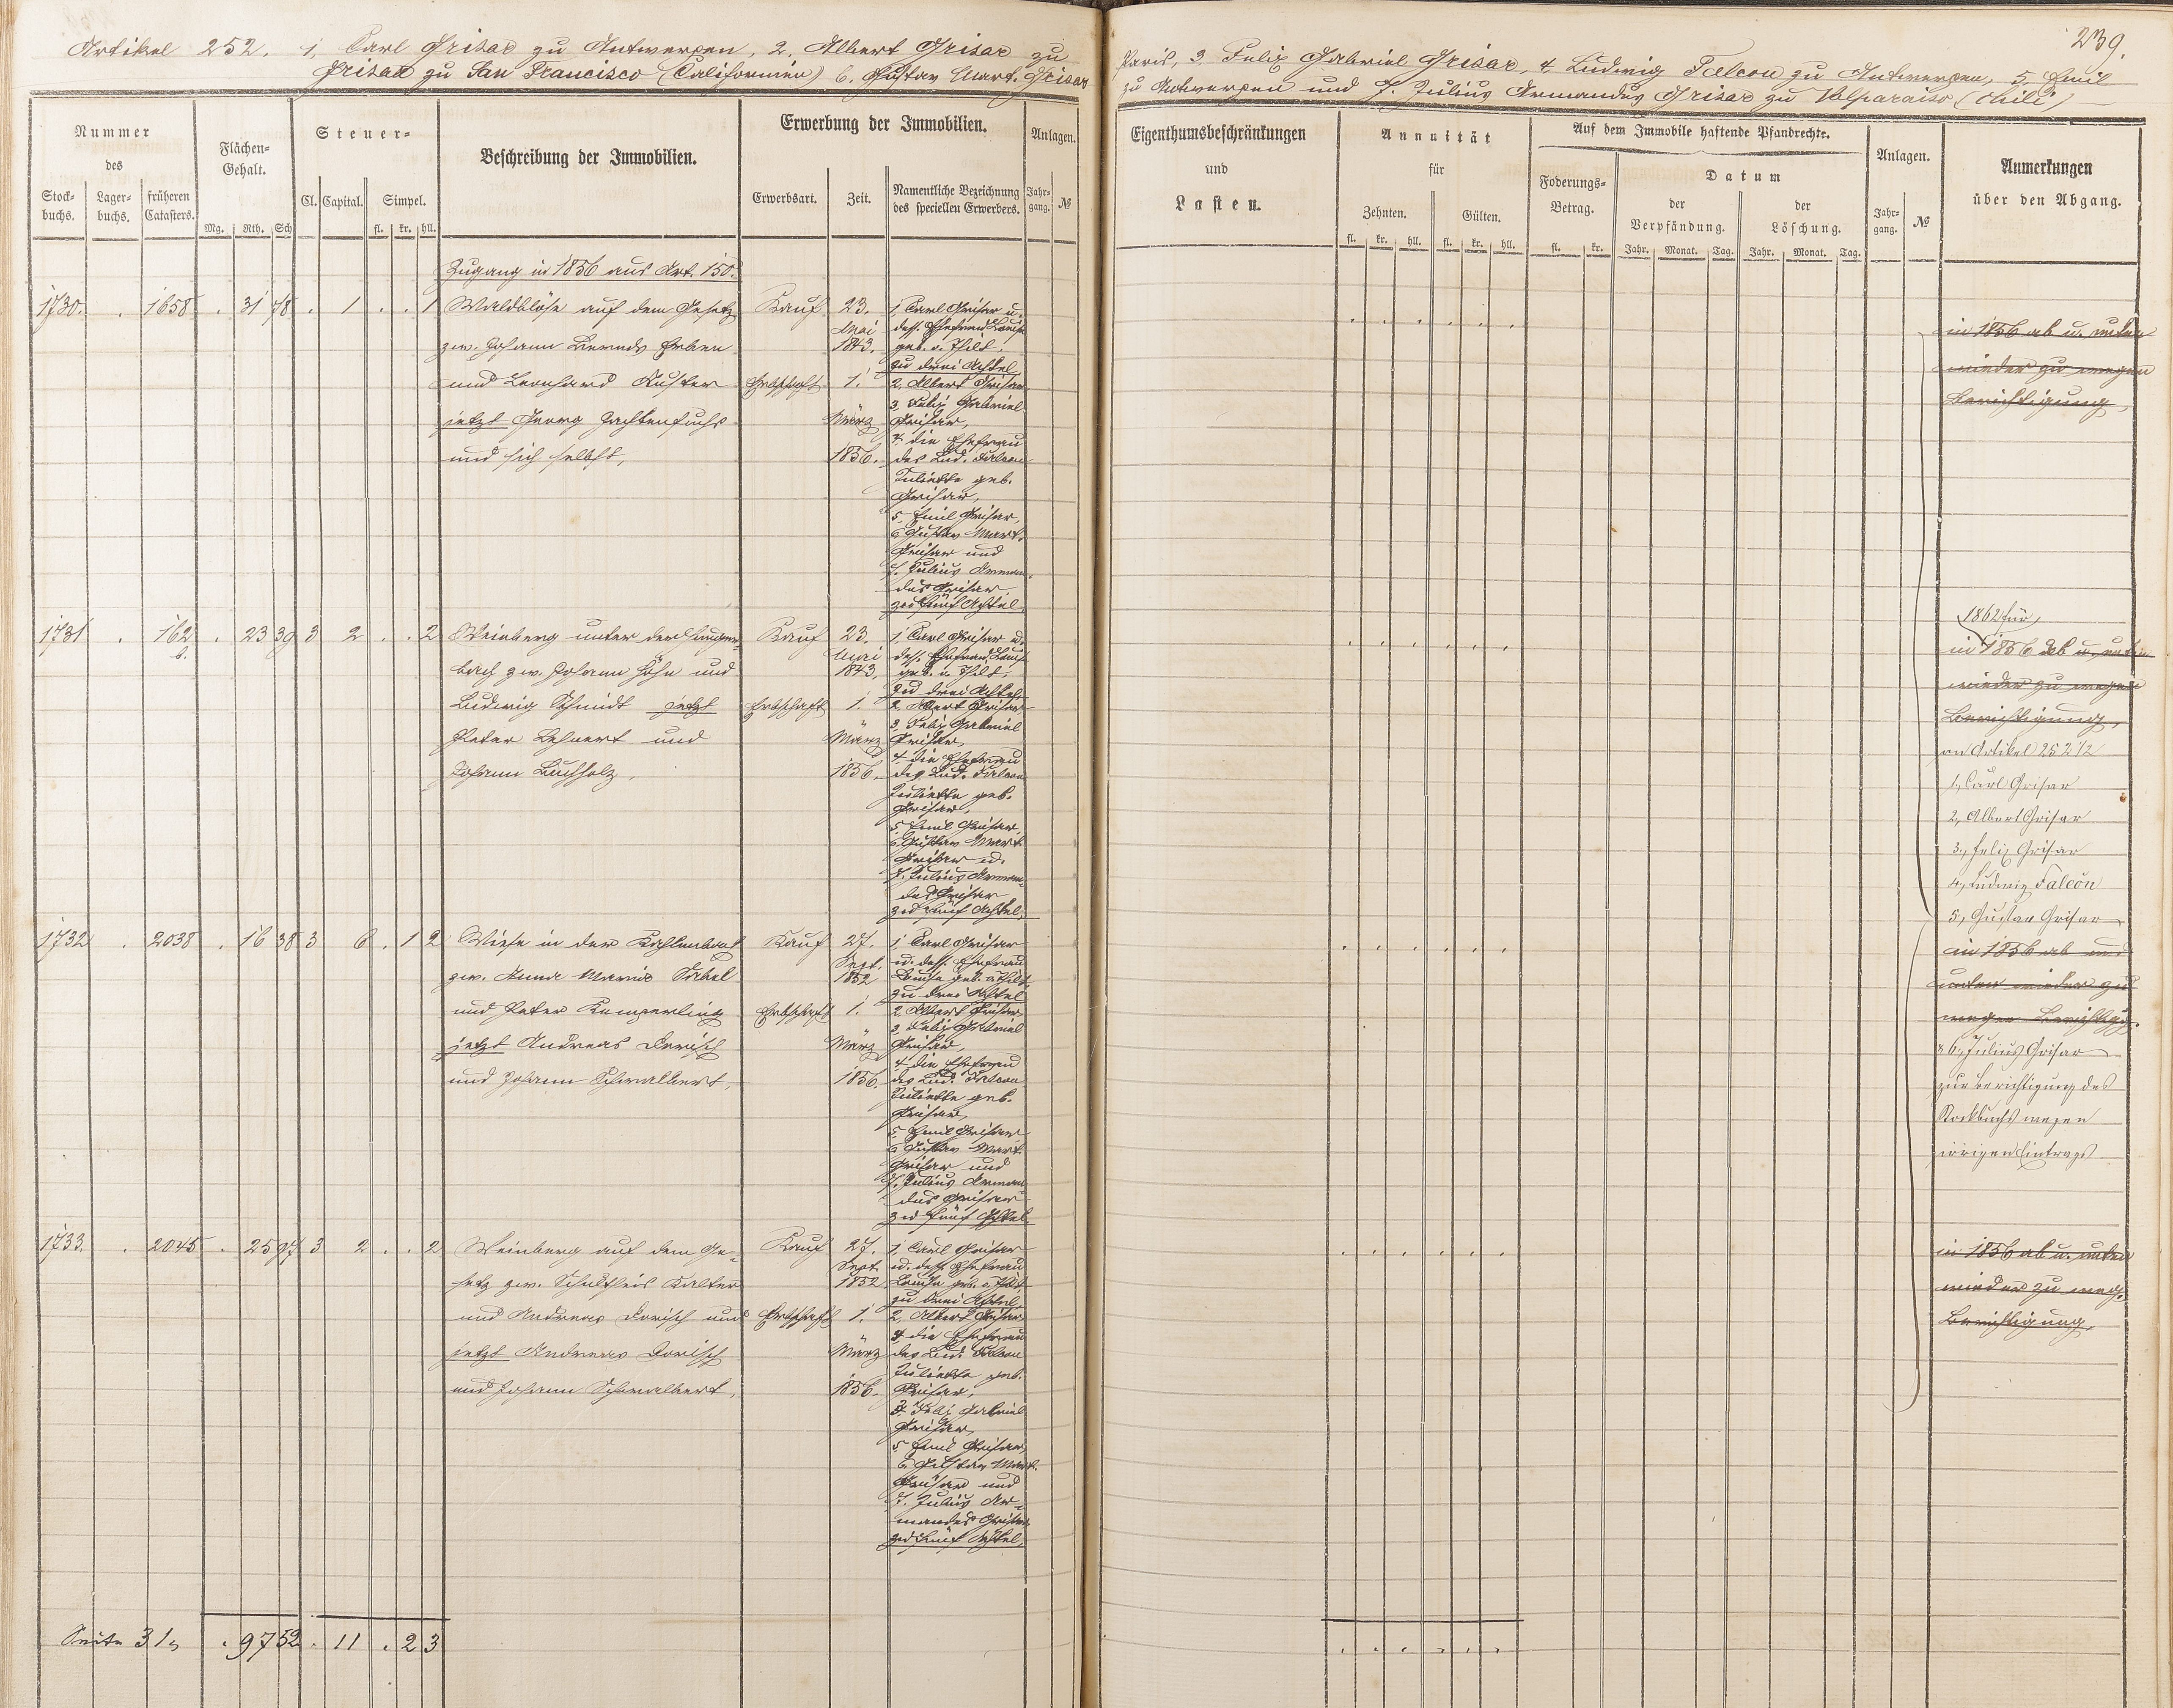 239.
Artikel 252. 1, Carl Grisar zu Antwerpen, 2. Albert Grisar zu
Paris, 3, Felix Gabriel Grisar, 4. Ludwig Falcon zu Antwerpen, 5, Emil
Grisar zu San Francisco (Californien) 6. Gustav Mart. Grisar
zu Antwerpen und 7. Julius Armandus Grisar zu Valparaiso (Chili)
Nummer
des
Stock-
buchs.
Lager-
buchs.
früheren
Catasters.
Flächen-
Gehalt.
Mg. Rth. Sch
Steuer-
Cl. Capital. Simpel.
fl. kr. hll.
Beschreibung der Immobilien.
Erwerbung der Immobilien.
Erwerbsart. Zeit.
Namentliche Bezeichnung
des speciellen Erwerbers.
Anlagen.
Jahr-
gang. №
Eigenthumsbeschränkungen
und
Lasten.
Annuität
für
Zehnten. Gülten.
fl. kr. hll. fl. kr. hll.
Auf dem Immobile haftende Pfandrechte.
Foderungs-
Betrag.
fl. kr.
Datum
der
Verpfändung.
der
Löschung.
Jahr. Monat. Tag. Jahr. Monat. Tag.
Anlagen.
Jahr-
gang. №
Anmerkungen
über den Abgang.
Zugang in 1856 aus Art. 150.
1730. . 1658 . 31 78 . 1 . . 1
Waldblöse auf dem Gesetz
zw. Johann Bernds Erben
und Leonhard Kuster
jetzt Georg Hachtenfuchs
und sich selbst,
Kauf
23.
Mai
1843.
Erbschaft
1.
März
1856.
1, Carl Grisar u.
dess. Ehefrau Louise
geb. v. Thild,
zu drei Achtel
2, Albert Grisar
3, Felix Gabriel
Grisar,
4. die Ehefrau
des Lud. Falcon
Juliette geb.
Grisar,
5, Emil Grisar,
6, Gustav Mart.
Grisar und
7. Julius Arman-
dus Grisar
zu fünf Achtel
in 1856 ab u. unten
wieder zu wegen
Berichtigung,
1731 . 162 b. . 23 39 3 2 . . 2
Weinberg unter der
bach zw. Johann Höhn und
Ludwig Schmidt jetzt
Peter Lehnert und
Johann Buchholz,
Kauf
23.
Mai
1843.
Erbschaft
1.
März
1856.
1, Carl Grisar u.
dess. Ehefrau Louise
geb. v. Thild,
zu drei Achtel,
2, Albert Grisar
3, Felix Gabriel
Grisar,
4. die Ehefrau
des Lud. Falcon
Juliette geb.
Grisar,
5, Emil Grisar,
6, Gustav Mart.
Grisar u.
7. Julius Arman-
dus Grisar
zu fünf Achtel,
1862 für
in 1856 ab u. unten
wieder zu wegen
Berichtigung,
an Artikel 252 1/2
1, Carl Grisar
2, Albert Grisar
3, Felix Grisar
4, Ludwig Falcon
5, Gustav Grisar
1732 . 2038 . 16 38 3 6 . 1 2
Wiese in der
zw. Anna Maria Sabel
und Peter Kemperling
jetzt Andreas Dorisch
und Johann Schwalbert,
Kauf
27.
Sept.
1852
Erbschaft
1.
März
1856.
1, Carl Grisar
u. dess. Ehefrau
Louise geb. v. Thild
zu drei Achtel
2, Albert Grisar,
3, Felix Gabriel
Grisar,
4. die Ehefrau
des Lud. Falcon
Juliette geb.
Grisar,
5, Emil Grisar
6, Gustav Mart.
Grisar und
7. Julius Arman
dus Grisar
zu fünf Achtel
in 1856 ab und
unten wieder zu
wegen Berichtgg.
& 6, Julius Grisar
zur Berichtigung des
Stockbuchs wegen
irrigen Eintrags
1733. . 2045 . 25 97 3 2 . . 2
Weinberg auf dem Ge-
setz zw. Schultheis Kalter
und Andreas Dorisch und
jetzt Andreas Dorisch
und Johann Schwalbert,
Kauf
27.
Sept
1852
Erbschaft
1.
März
1856.
1, Carl Grisar
u. dess. Ehefrau
Louise geb. v. Thild,
zu drei Achtel,
2, Albert Grisar,
4. die Ehefrau
des Lud. Falcon
Juliette geb.
Grisar,
3. Felix Gabriel
Grisar,
5, Emil Grisar,
6, Gustav Mart.
Grisar und
7. Julius Ar-
mandus Grisar
zu fünf Achtel,
in 1856 ab u. unten
wieder zu weg.
Berichtigung,
Seite 31, . 97 52 . 11 . 2 3